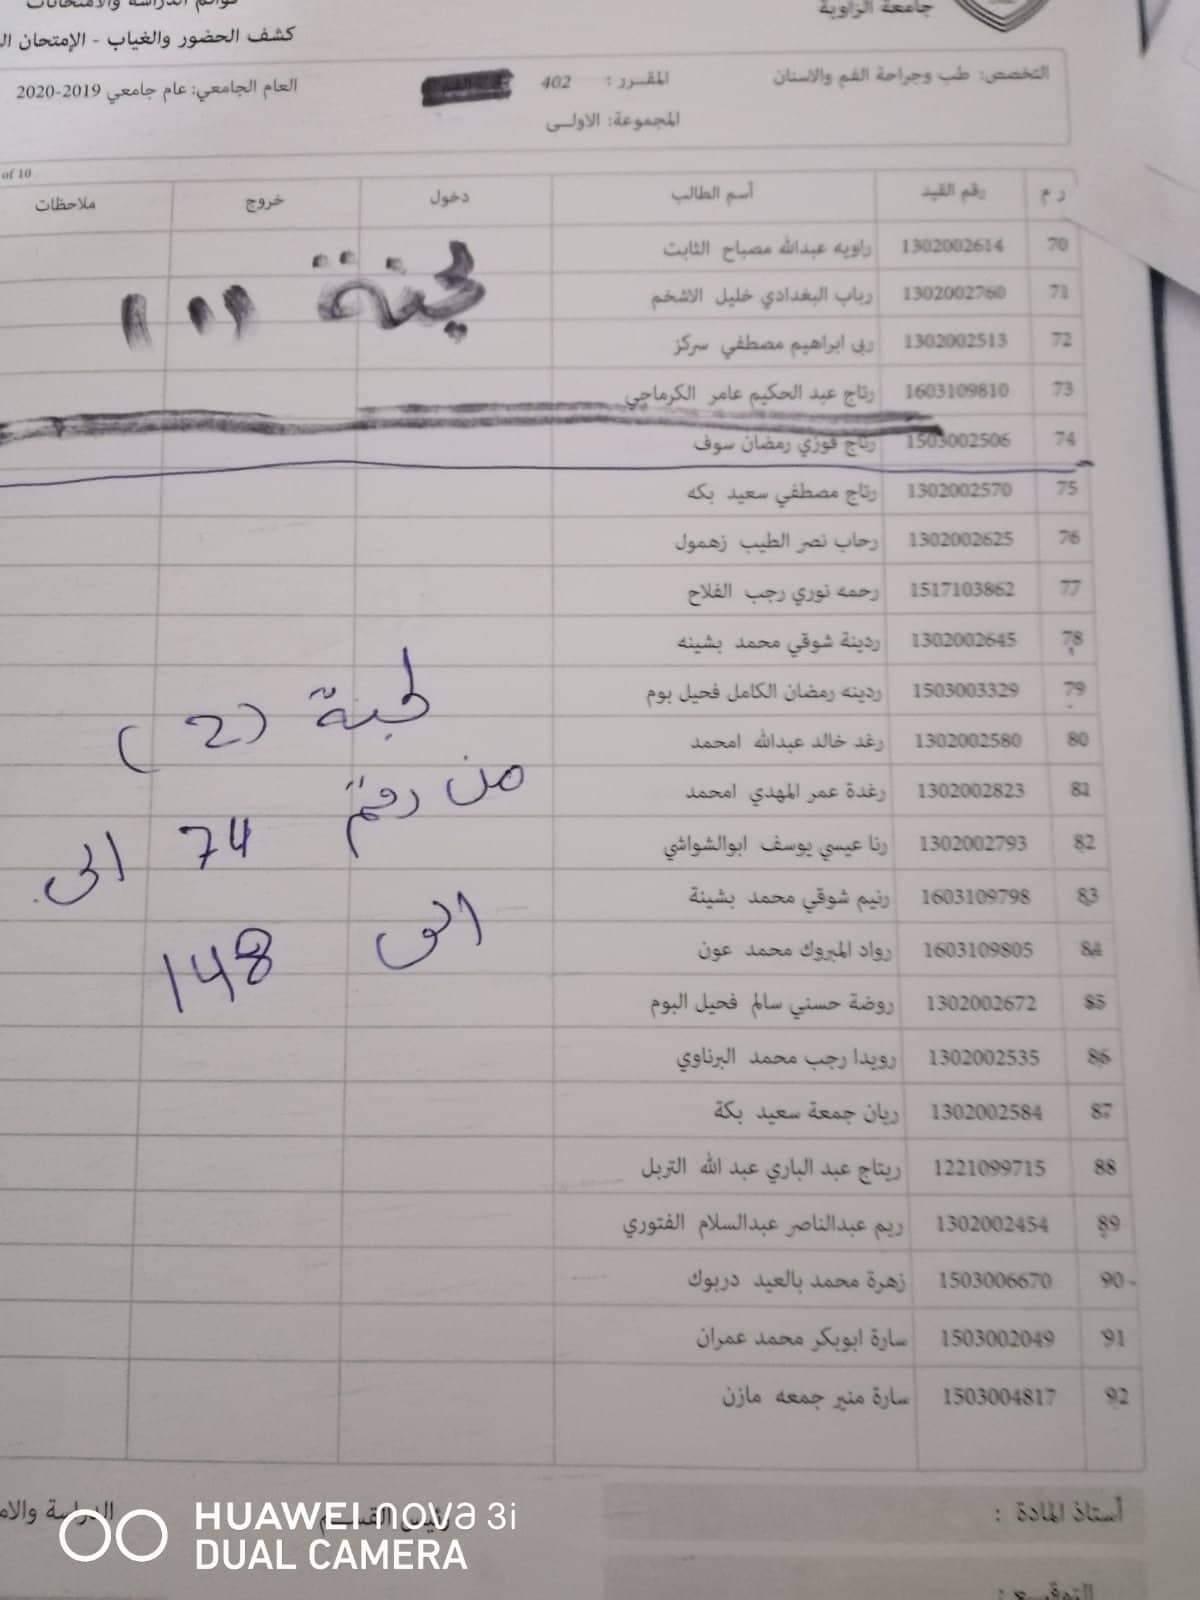 جامعة الزاوية
قوائم الدراسة والامتحانات
كشف الحضور والغياب - الإمتحان
التخصص: طب وجراحة الفم والاسنان المقــرر : 402 العام الجامعي: عام جامعي 2019-2020
المجموعة: الاولــى
of 10
ر م رقم القيد أسم الطالب دخول خروج ملاحظات
70 1302002614 راويه عبدالله مصباح الثابت
71 1302002760 رباب البغدادي خليل الاشخم
لجنة
72 1302002513 ربى ابراهيم مصطفي سركز
73 1603109810 رتاج عبد الحكيم عامر الكرماجي
74 1503002506 رتاج فوزي رمضان سوف
75 1302002570 رتاج مصطفي سعيد بكه
76 1302002625 رحاب نصر الطيب زهمول
77 1517103862 رحمه نوري رجب الفلاح
78 1302002645 ردينة شوقي محمد بشينه
79 1503003329 ردينه رمضان الكامل فحيل بوم
لجنة (2)
80 1302002580 رغد خالد عبدالله امحمد
81 1302002823 رغدة عمر المهدي امحمد
من رقم 74 الى
82 1302002793 رنا عيسي يوسف ابوالشواشي
83 1603109798 رنيم شوقي محمد بشينة
الى 148
84 1603109805 رواد المبروك محمد عون
85 1302002672 روضة حسني سالم فحيل البوم
86 1302002535 رويدا رجب محمد البرناوي
87 1302002584 ريان جمعة سعيد بكة
88 1221099715 ريتاج عبد الباري عبد الله التربل
89 1302002454 ريم عبدالناصر عبدالسلام الفتوري
90 1503006670 زهرة محمد بالعيد دربوك
91 1503002049 سارة ابوبكر محمد عمران
92 1503004817 سارة منير جمعه مازن
أستاذ المادة : رئيس القسم الدراسة والام
التوقيع :
HUAWEI nova 3i
DUAL CAMERA